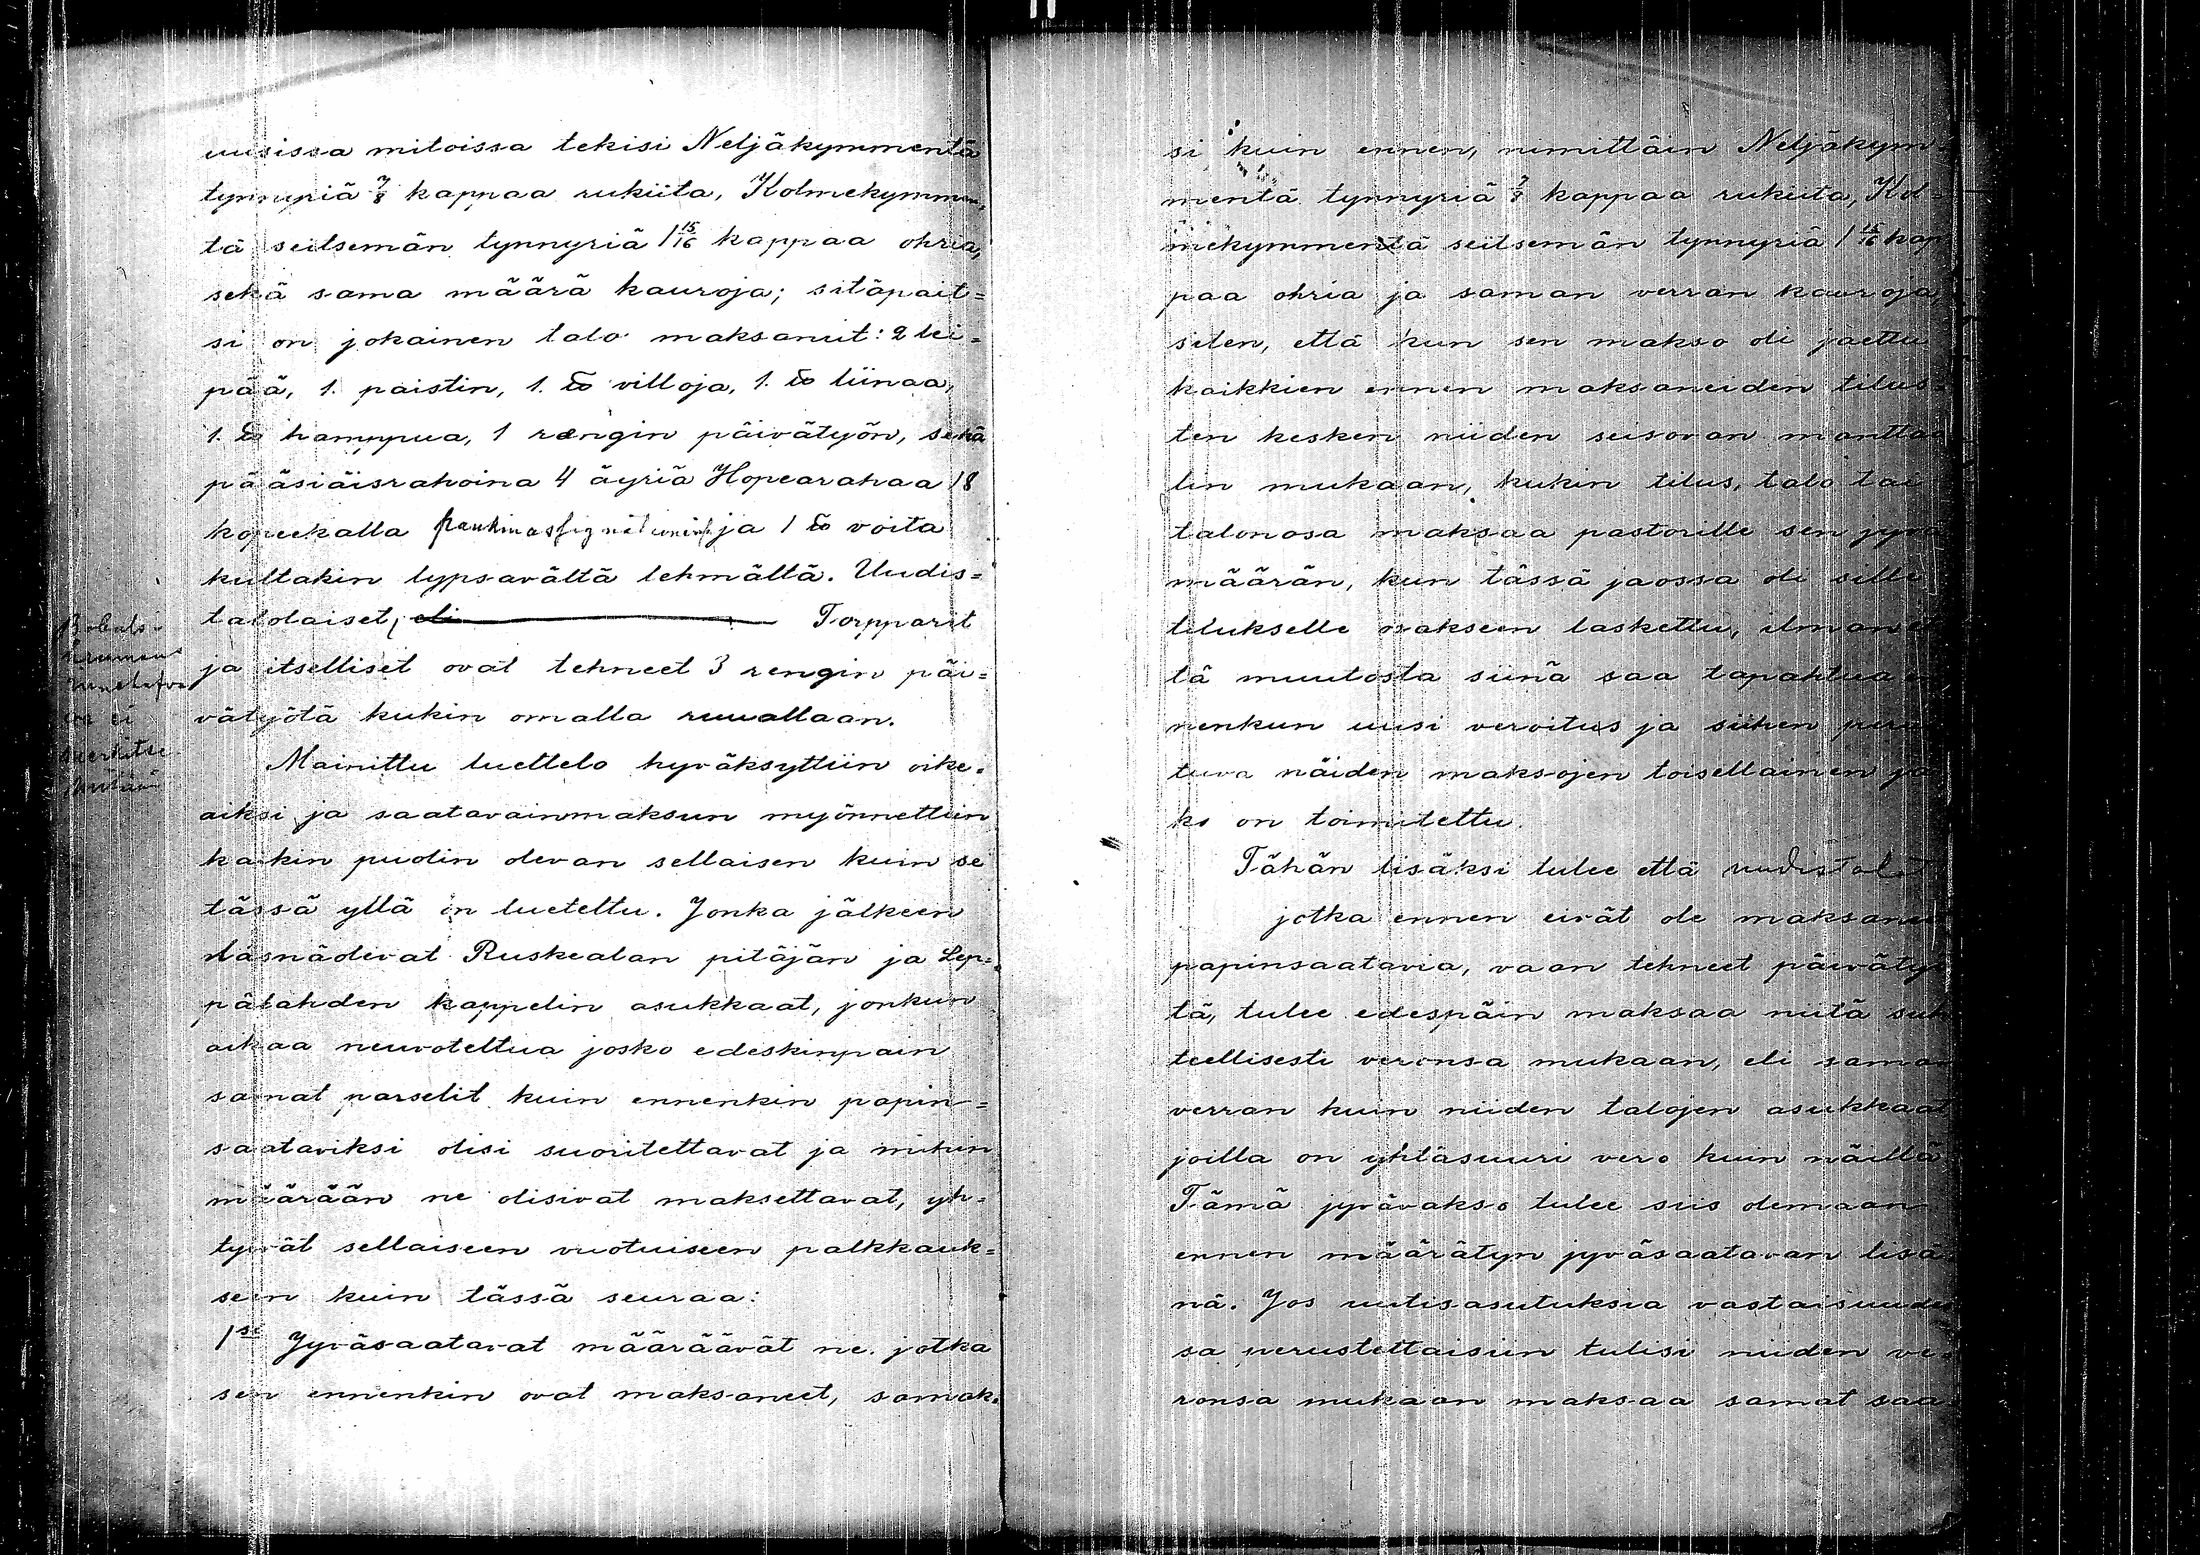 uusissa mitoissa tekisi Neljäkymmentä
tynnyriä 7/8 kappaa rukiita, Kolmekymmen,
tä seitsemän tynnyriä 1 15/16 kappaa ohria,
sekä sama määrä kauroja; sitäpait=
si on jokainen talo maksanut: 2 lei=
pää, 1. paistin, 1. ℔ villoja, 1. ℔ liinaa,
1. ℔ hamppua, 1 rengin päivätyön, sekä
pääsiäisrahoina 4 äyriä Hopearahaa 18
kopeekalla ja 1 ℔ voita
kultakin lypsavältä lehmältä. Uudis=
talolaiset, eli Torpparit
ja itselliset ovat tehneet 3 rengin päi=
vätyötä kukin omalla ruuallaan.
Mainittu luettelo hyväksyttiin oike=
aiksi ja saatavainmaksun myönnettiin
kaikin puolin olevan sellaisen kuin se
tässä yllä on lueteltu. Jonka jälkeen
läsnäolevat Ruskealan pitäjän ja Lep=
pälahden kappelin asukkaat, jonkun
aikaa neuvoteltua josko edeskinpäin
samat parselit kuin ennenkin papin=
saataviksi olisi suoritettavat ja mihin
määrään ne olisivat maksettavat, yh=
tyivät sellaiseen vuotuiseen palkkauk=
seen kuin tässä seuraa:
1si Jyväsaatavat määräävät ne jotka
sen ennenkin ovat maksaneet, samak=
si kuin ennen, nimittäin Neljäkym=
mentä tynnyriä 7/8 kappaa rukiita, Kol=
mekymmentä seitsemän tynnyriä 1 15/16 kap
paa ohria ja saman verran kauroja,
siten, että kun sen makso oli jaettu
kaikkien ennen maksaneiden tilus=
ten kesken niiden seisovan mantta
lin mukaan, kukin tilus, talo tai
talonosa maksaa pastorille sen jyvä
määrän, kun tässä jaossa oli sille
tilukselle osakseen laskettu, ilman et
tä muutosta siinä saa tapahtua en
nenkun uusi veroitus ja siihen perus
tuva näiden maksojen toisellainen ja
ko on toimitettu.
Tähän lisäksi tulee että uudistalot
jotka ennen eivät ole maksaneet
papinsaatavia, vaan tehneet päivätyö
tä, tulee edespäin maksaa niitä suh
teellisesti veronsa mukaan, eli saman
verran kuin niiden talojen asukkaat
joilla on yhtäsuuri vero kuin näillä
Tämä jyvävakso tulee siis olemaan
ennen määrätyn jyväsaatavan lisä
nä. Jos uutisasutuksia vastaisuudes
sa perustettaisiin tulisi niiden ve=
ronsa mukaan maksaa samat saa